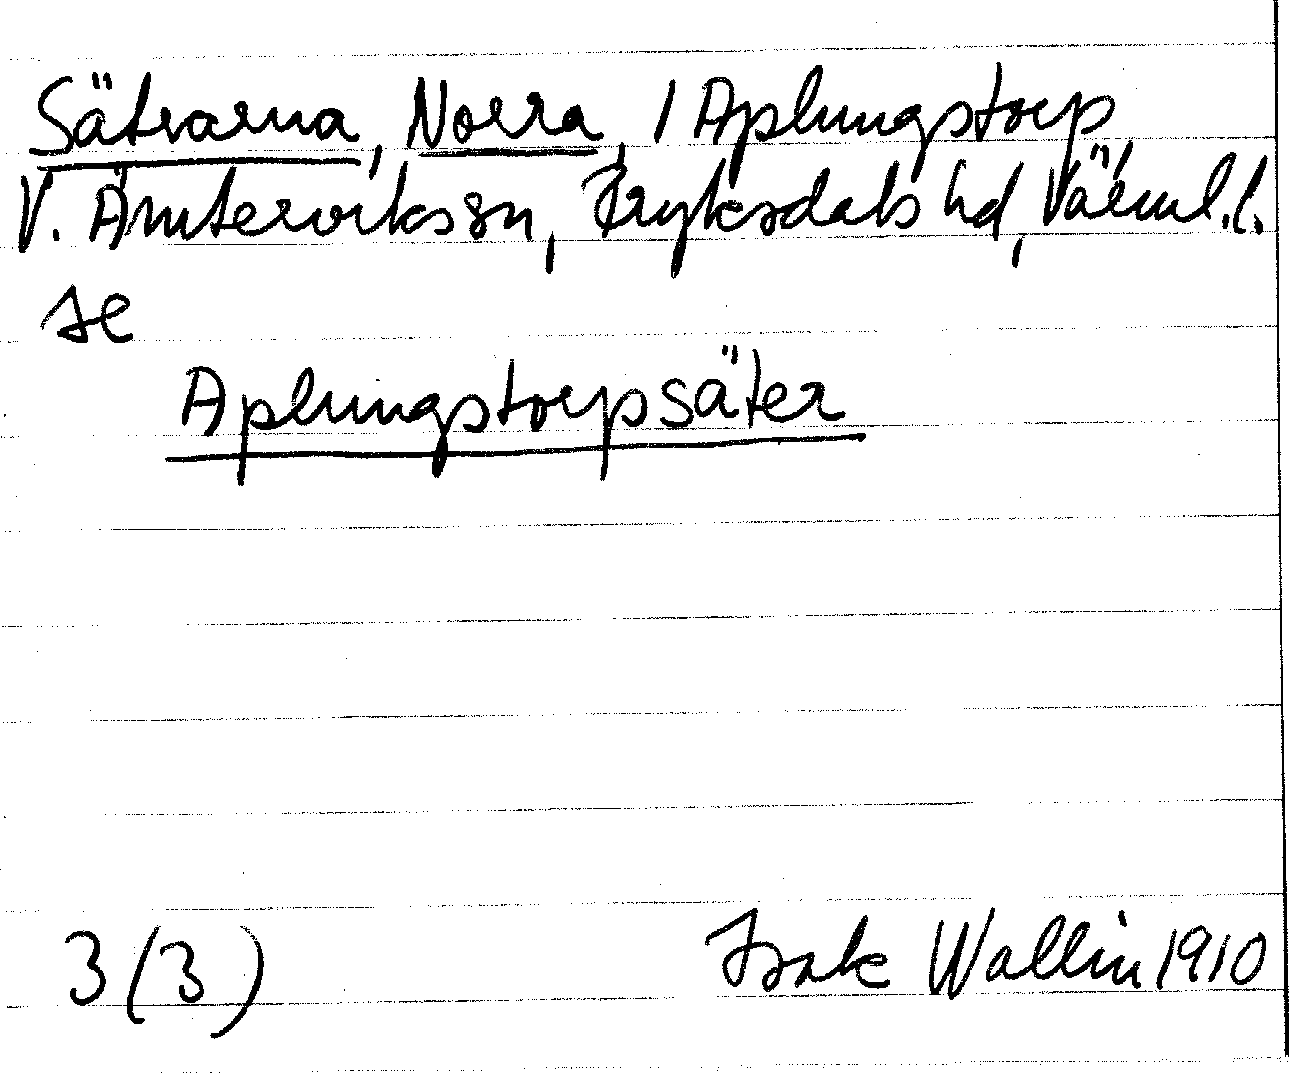 Sätrarna, Norra, / Aplungstorp,
V. Ämterviks sn, Fryksdals hd, Värml. l.
se
Aplungstorpsäter
3 (3) Isak Wallin 1910